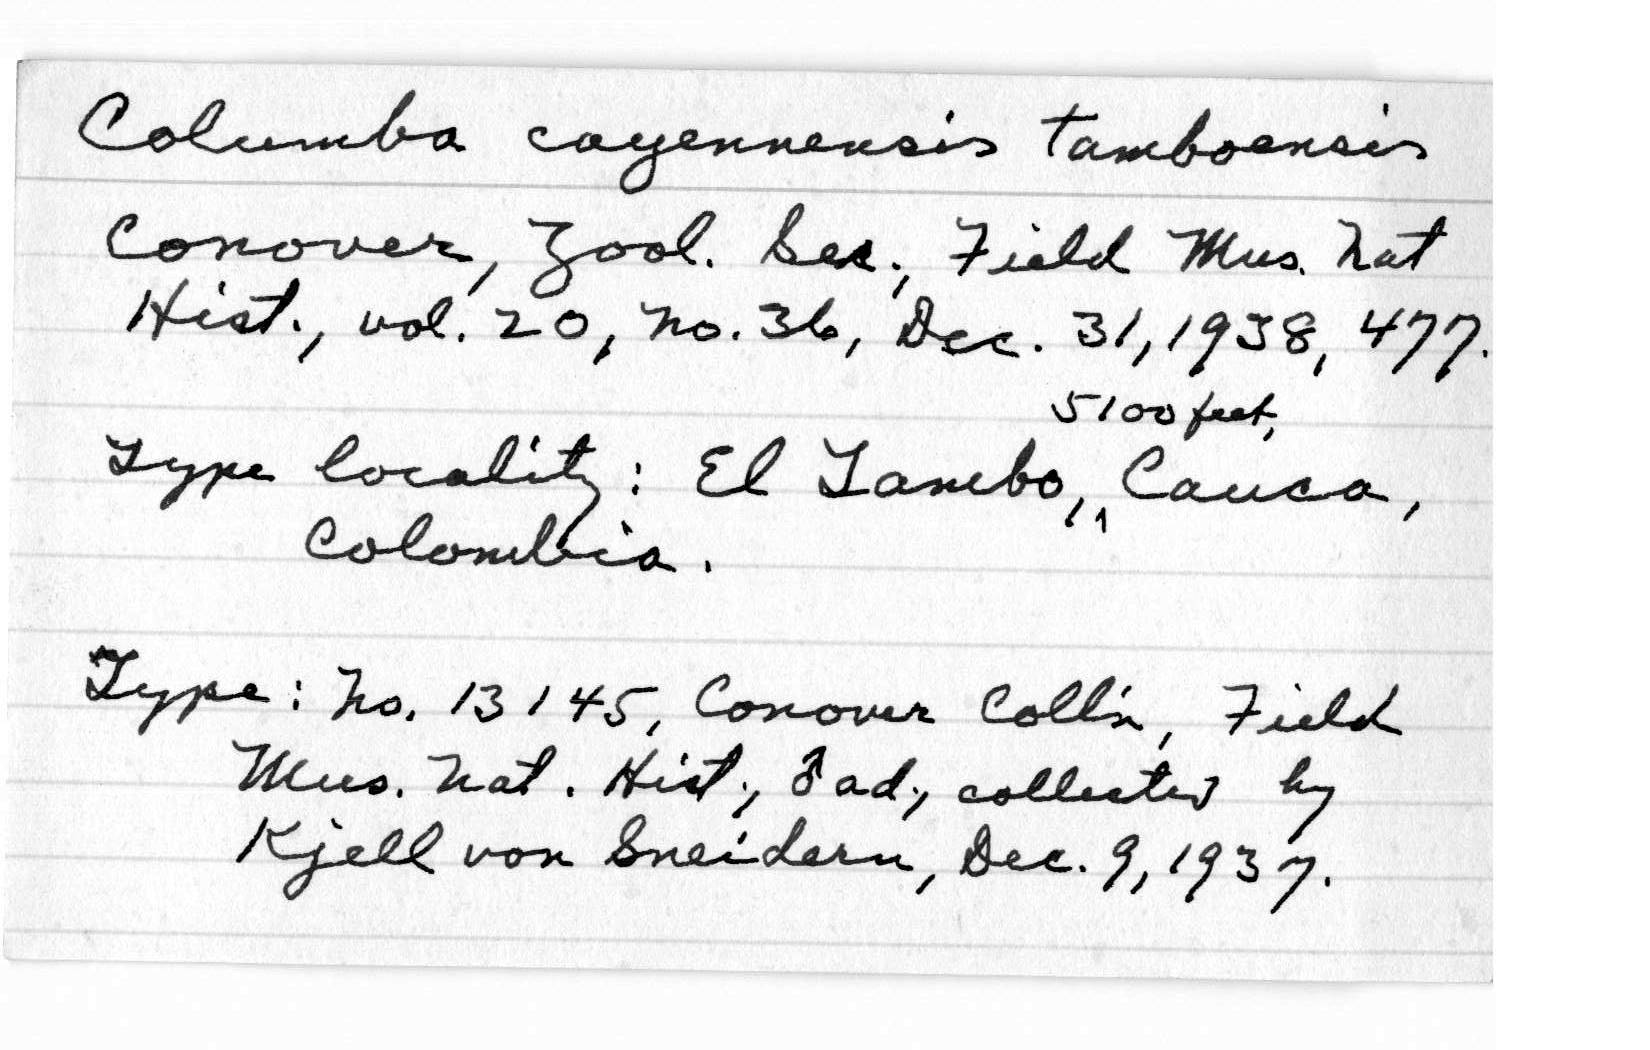 Columba cayennensis tamboensis
Conover, Zool. Ser., Field Mus. Nat
Hist., vol. 20, no. 36, Dec. 31, 1938, 477.
5100 feet,
Type locality: El Tambo, ^ Cauca,
Colombia.
Type: No. 13145, Conover Coll'n, Field
Mus. Nat. Hist., ♂ ad., collected by
Kjell von Sneidern, Dec. 9, 1937.